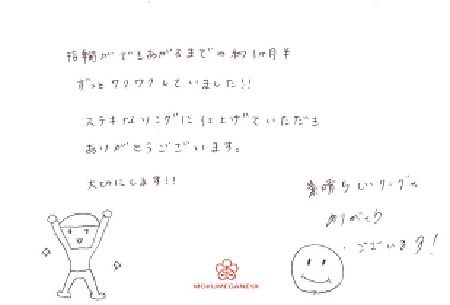 指輪ができあがるまでの約1ヶ月半
ずっとワクワクしていました!!
ステキなリングに仕上げていただき
ありがとうございます。
大切にします!!
素晴らしいリングを
ありがとう
ございます!
MOKUMEGANEYA